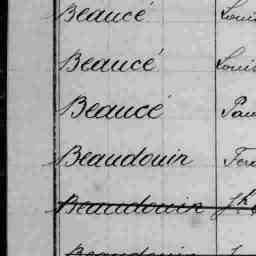 Beaucé Loui
Beaucé Loui
Beaucé Pau
Beaudouin Ferd
Beaudouin Jh
Beaudouin